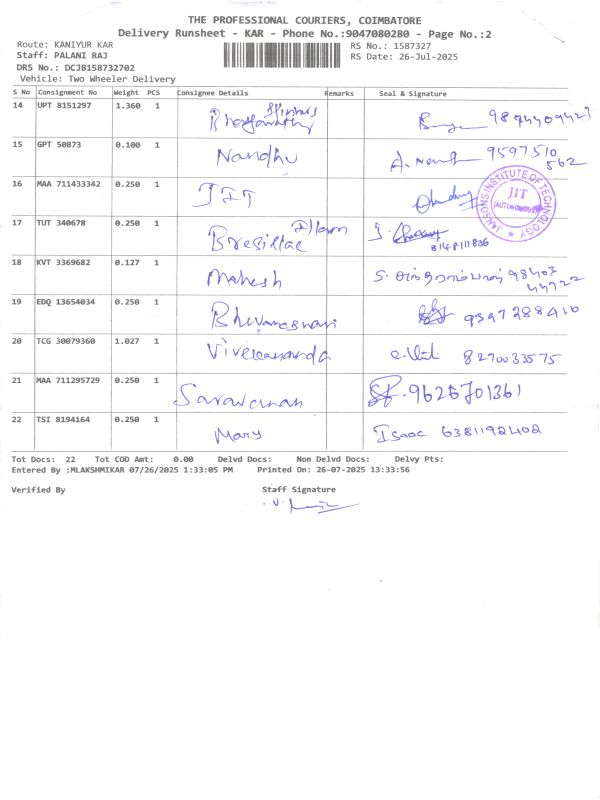 THE PROFESSIONAL COURIERS, COIMBATORE
Delivery Runsheet - KAR - Phone No.:9047080280 - Page No.:2
Route: KANIYUR KAR RS No.: 1587327
Staff: PALANI RAJ RS Date: 26-Jul-2025
DRS No.: DCJB158732702
Vehicle: Two Wheeler Delivery
S No Consignment No Weight PCS Consignee Details Remarks Seal & Signature
14 UPT 8151297 1.360 1
15 GPT 50873 0.100 1 Nandhu 9597510
562
16 MAA 711433342 0.250 1 JIT
JANSONS INSTITUTE OF TECHNOLOGY
JIT
(AUTONOMOUS)
17 TUT 340678 0.250 1
8148111836
18 KVT 3369682 0.127 1 Mahesh 98403
44722
19 EDQ 13654034 0.250 1 Bhuvaneswari 9597288410
20 TCG 30079360 1.027 1 Vivekananda 8270033575
21 MAA 711295729 0.250 1 Saravanan 9626701361
22 TSI 8194164 0.250 1 Mary Isaac 6381192402
Tot Docs: 22 Tot COD Amt: 0.00 Delvd Docs: Non Delvd Docs: Delvy Pts:
Entered By :MLAKSHMIKAR 07/26/2025 1:33:05 PM Printed On: 26-07-2025 13:33:56
Verified By Staff Signature